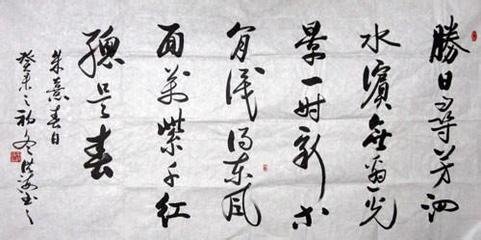 勝日尋芳泗
水濱無邊光
景一時新等
閒識得東風
面萬紫千紅
總是春
朱熹春日
癸未之初冬書之